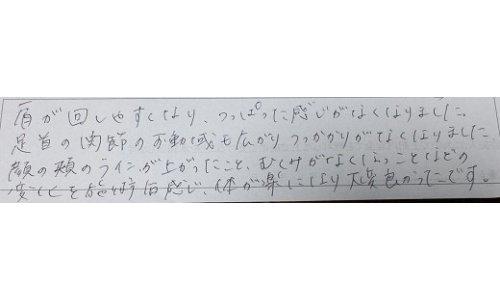 肩が回しやすくなり、つっぱった感じがなくなりました。
足首の関節の可動域も広がりつっかかりがなくなりました
顔の頬のラインが上がったこと、むくみがなくなったことなどの
変化を施術后感じ、体が楽になり大変良かったです。